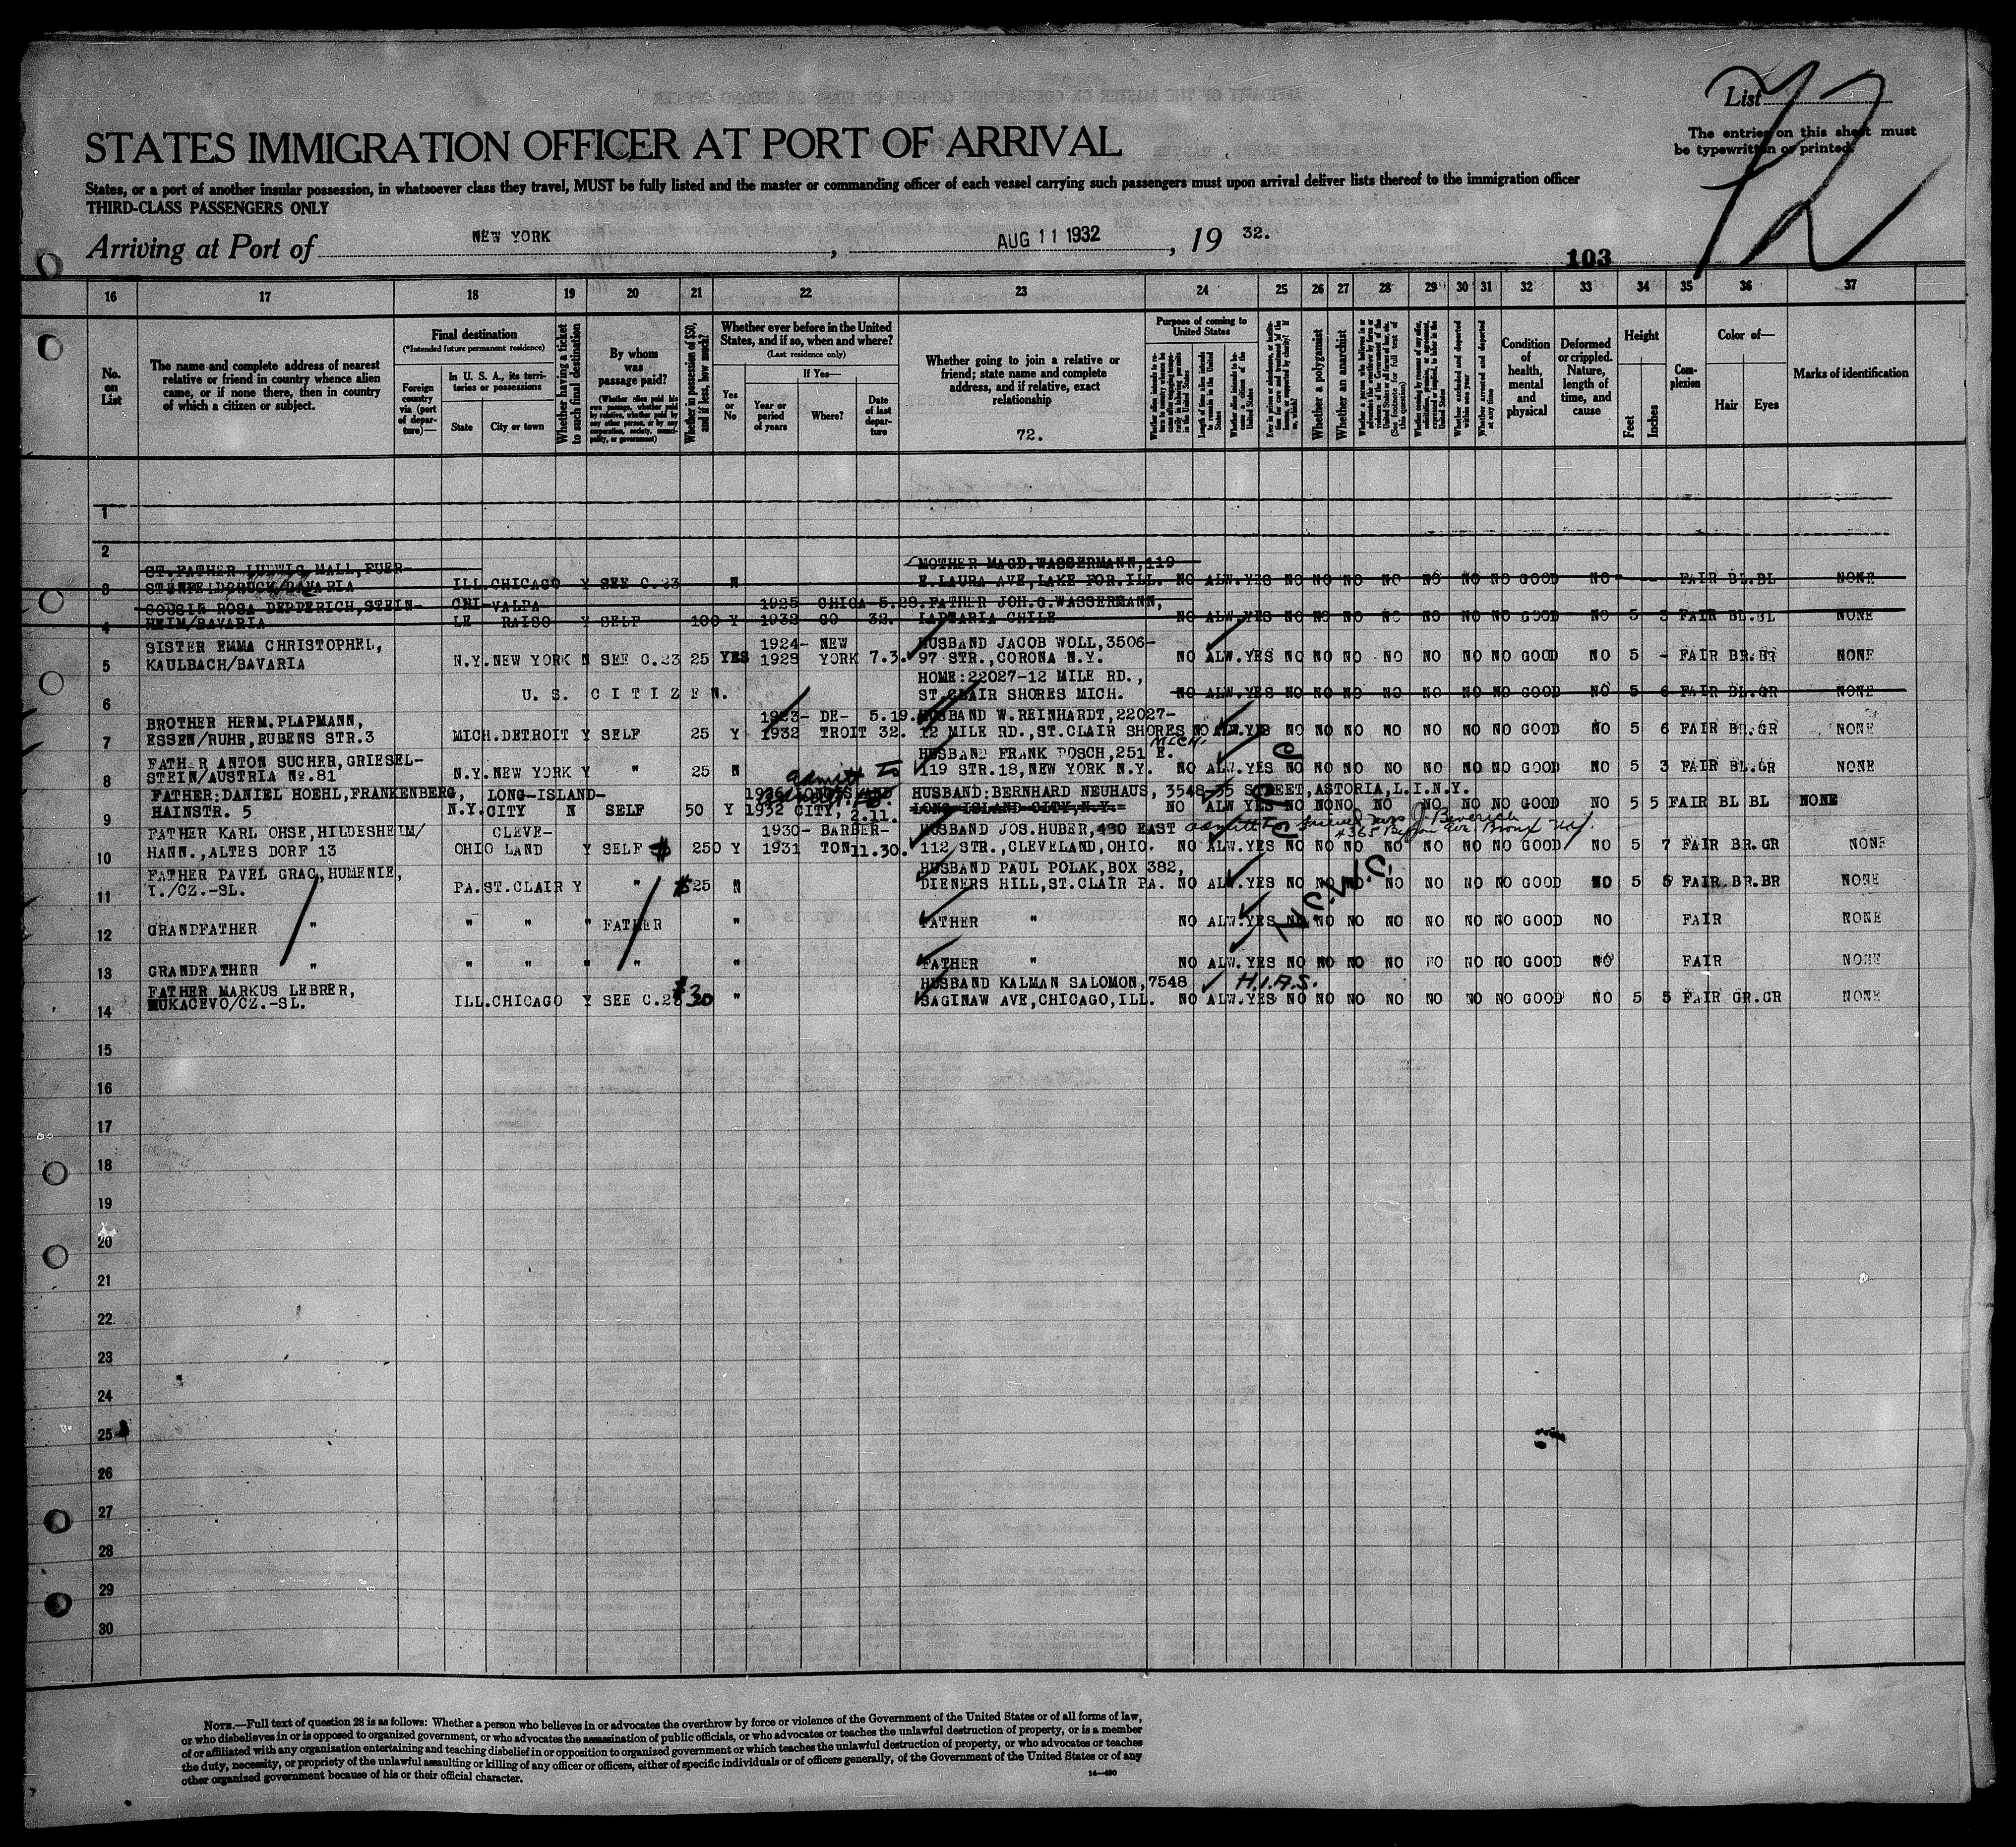 List 72
The entries on this sheet must
be typewritten or printed.
STATES IMMIGRATION OFFICER AT PORT OF ARRIVAL
States, or a port of another insular possession, in whatsoever class they travel, MUST be fully listed and the master or commanding officer of each vessel carrying such passengers must upon arrival deliver lists thereof to the immigration officer
THIRD-CLASS PASSENGERS ONLY
Arriving at Port of NEW YORK, AUG 11 1932, 19 32.
103
16 17 18 19 20 21 22 23 24 25 26 27 28 29 30 31 32 33 34 35 36 37
No. on List
The name and complete address of nearest
relative or friend in country whence alien
came, or if none there, then in country
of which a citizen or subject.
Final destination
(*Intended future permanent residence)
Foreign country via (port of departure)—
In U. S. A., its territories or possessions
State City or town
Whether having a ticket to such final destination
By whom was passage paid?
(Whether alien paid his own passage, whether paid by relative, whether paid by any other person, or by any corporation, society, municipality, or government)
Whether in possession of $50, and if less, how much?
Whether ever before in the United
States, and if so, when and where?
(Last residence only)
Yes or No
If Yes—
Year or period of years
Where?
Date of last departure
Whether going to join a relative or
friend; state name and complete
address, and if relative, exact
relationship
72.
Purpose of coming to United States
Whether a polygamist
Whether an anarchist
Condition of health, mental and physical
Deformed or crippled. Nature, length of time, and cause
Height
Feet Inches
Complexion
Color of—
Hair Eyes
Marks of identification
1
2
ST.FATHER LUDWIG MALL,FUER- MOTHER MAGD.WASSERMANN,119
3 BAVARIA ILL.CHICAGO Y SEE C.23 N E.LAURA AVE,LAKE FOR.ILL. NO ALW.YES NO NO NO NO NO NO NO GOOD NO FAIR BL.BL NONE
COUSIN ROSA DEPPERICH,STEIN- CHI- VALPA- 1925 CHICA- 5.28. FATHER JOH.G.WASSERMANN,
4 HEIM/BAVARIA LE RAISO Y SELF 100 Y 1932 GO 32. CHILE NO ALW.YES NO NO NO NO NO NO NO GOOD NO 5 3 FAIR BL.BL NONE
SISTER EMMA CHRISTOPHEL, 1924- NEW HUSBAND JACOB WOLL,3506-
5 KAULBACH/BAVARIA N.Y.NEW YORK N SEE C.23 25 YES 1929 YORK 7.3. 97 STR.,CORONA N.Y. NO ALW.YES NO NO NO NO NO NO NO GOOD NO 5 - FAIR BR.BR NONE
HOME:22027-12 MILE RD.,
6 U.S. CITIZEN. ST.CLAIR SHORES MICH. NO ALW.YES NO NO NO NO NO NO NO GOOD NO 5 6 FAIR BL.GR NONE
BROTHER HERM.PLAPMANN, 1923- DE- 5.19. HUSBAND W.REINHARDT,22027-
7 ESSEN/RUHR,RUBENS STR.3 MICH.DETROIT Y SELF 25 Y 1932 TROIT 32. 12 MILE RD.,ST.CLAIR SHORES NO ALW.YES NO NO NO NO NO NO NO GOOD NO 5 6 FAIR BR.GR NONE
MICH.
FATHER ANTON SUCHER,GRIESEL- HUSBAND FRANK POSCH,251 E.
8 STEIN/AUSTRIA No.81 N.Y.NEW YORK Y " 25 N 119 STR.18,NEW YORK N.Y. NO ALW.YES NO NO NO NO NO NO NO GOOD NO 5 3 FAIR BL.GR NONE
admitt to
FATHER:DANIEL HOEHL,FRANKENBERG, LONG-ISLAND- 1926 HUSBAND:BERNHARD NEUHAUS, 3548-35 STREET,ASTORIA,L.I.N.Y.
9 HAINSTR. 5 N.Y.CITY N SELF 50 Y 1932 CITY, 2.11. LONG ISLAND CITY,N.Y. NO ALW YES NO NO NO NO NO NO NO GOOD NO 5 5 FAIR BL BL NONE
FATHER KARL OHSE,HILDESHEIM/ CLEVE- 1930- BARBER- HUSBAND JOS.HUBER,430 EAST
10 HANN.,ALTES DORF 13 OHIO LAND Y SELF 250 Y 1931 TON 11.30. 112 STR.,CLEVELAND,OHIO. NO ALW.YES NO NO NO NO NO NO NO GOOD NO 5 7 FAIR BR.GR NONE
FATHER PAVEL GRAC,HUMENIE, HUSBAND PAUL POLAK,BOX 382,
11 I./CZ.-SL. PA.ST.CLAIR Y " $25 N DIENERS HILL,ST.CLAIR PA. NO ALW.YES NO NO NO NO NO NO NO GOOD NO 5 5 FAIR BR.BR NONE
12 GRANDFATHER " " " " FATHER " FATHER " NO ALW.YES NO NO NO NO NO NO NO GOOD NO FAIR NONE
13 GRANDFATHER " " " " " " FATHER " NO ALW.YES NO NO NO NO NO NO NO GOOD NO FAIR NONE
FATHER MARKUS LEBRER, HUSBAND KALMAN SALOMON,7548 H.I.A.S.
14 MUKACEVO/CZ.-SL. ILL.CHICAGO Y SEE C.23 $30 " SAGINAW AVE,CHICAGO,ILL. NO ALW.YES NO NO NO NO NO NO NO GOOD NO 5 5 FAIR GR.GR NONE
15
16
17
18
19
20
21
22
23
24
25
26
27
28
29
30
NOTE.—Full text of question 28 is as follows: Whether a person who believes in or advocates the overthrow by force or violence of the Government of the United States or of all forms of law,
or who disbelieves in or is opposed to organized government, or who advocates the assassination of public officials, or who advocates or teaches the unlawful destruction of property, or is a member
of or affiliated with any organization entertaining and teaching disbelief in or opposition to organized government or which teaches the unlawful destruction of property, or who advocates or teaches
the duty, necessity, or propriety of the unlawful assaulting or killing of any officer or officers, either of specific individuals or of officers generally, of the Government of the United States or of any
other organized government because of his or their official character.
14—430